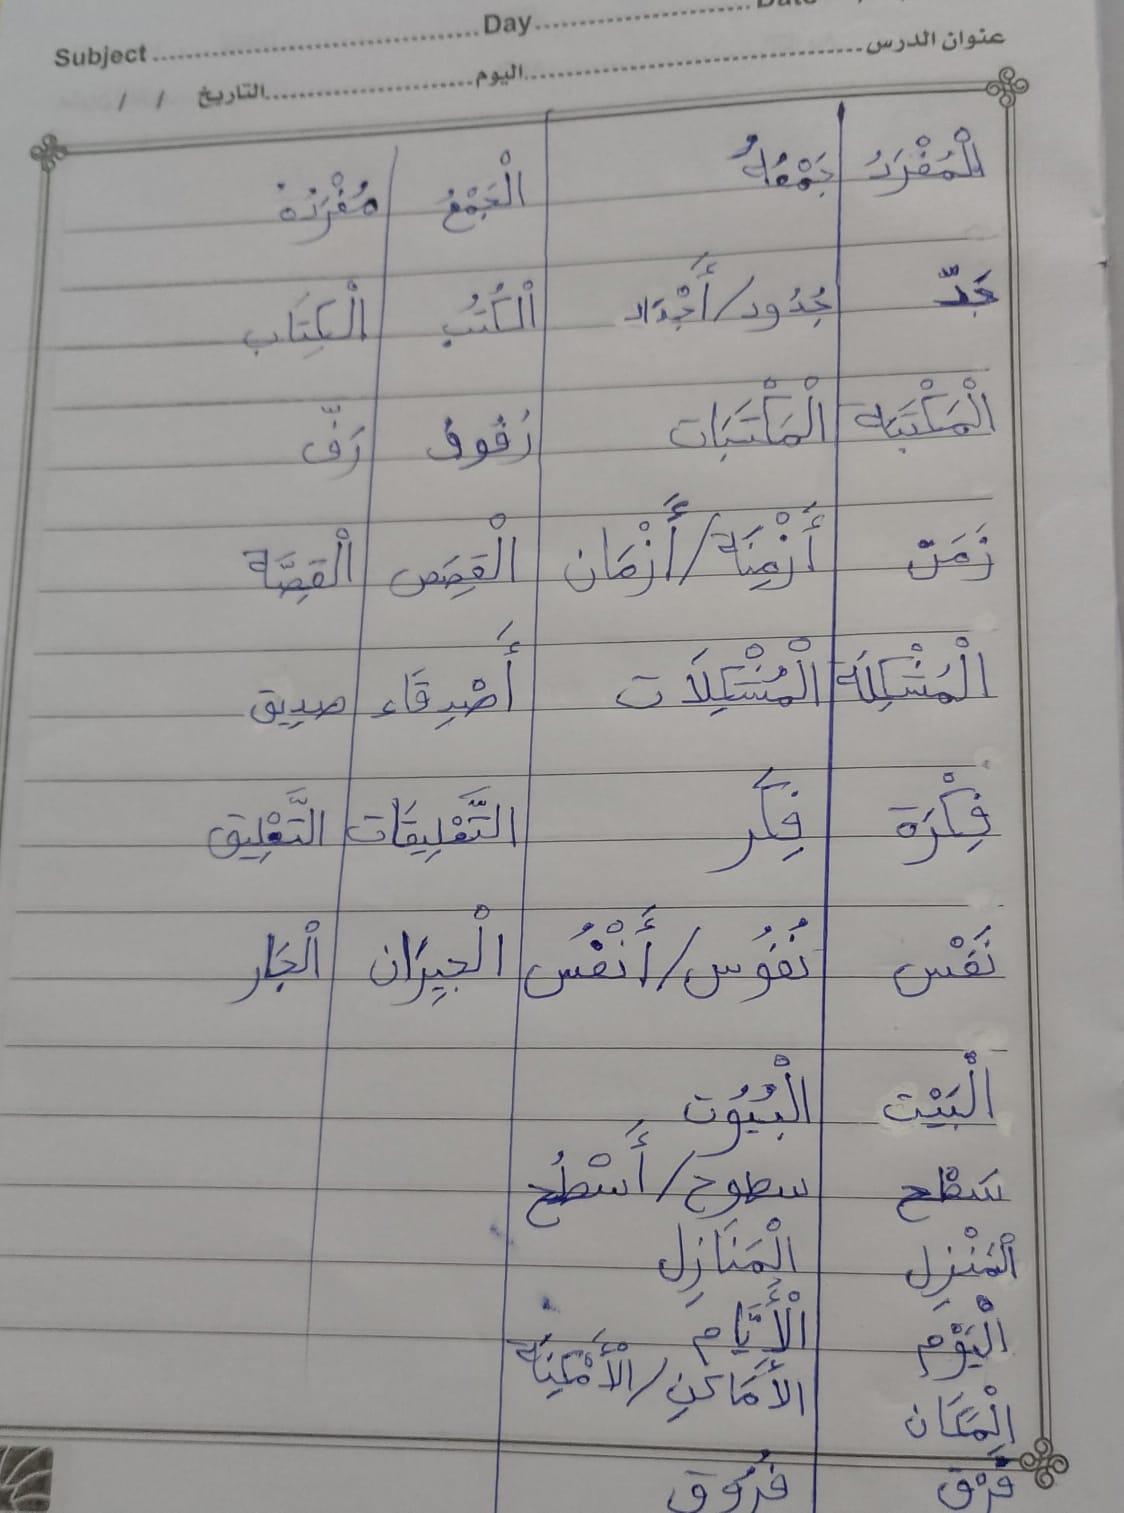 Subject Day
عنوان الدرس اليوم التاريخ / /
الْمُفْرَدُ جَمْعُهُ الْجَمْعُ مُفْرَدُهُ
جَدّ جُدُود/أَجْدَاد الْكُتُب الْكِتَاب
الْمَكْتَبَة الْمَكْتَبَات رُفُوف رَفّ
زَمَن أَزْمِنَة/أَزْمَان الْقِصَص الْقِصَّة
الْمُشْكِلَة الْمُشْكِلَات أَصْدِقَاء صدِيق
فِكْرَة فِكَر التَّعْلِيقَات التَّعْلِيق
نَفْس نُفُوس/أَنْفُس الْجِيرَان الْجَار
الْبَيْت الْبُيُوت
سَطْح سطوح/أَسْطُح
الْمَنْزِل الْمَنَازِل
الْيَوْم الْأَيَّام
الْمَكَان الأَمَاكِن/الْأَمْكِنَة
فَرْق فُرُوق